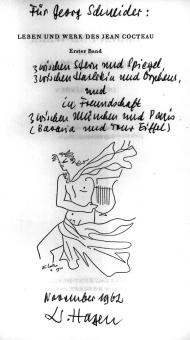 Für Georg Schneider:
LEBEN UND WERK DES JEAN COCTEAU
Erster Band
zwischen Stern und Spiegel,
zwischen Harlekin und Orpheus,
und
in Freundschaft
zwischen München und Paris
(Bavaria und Tour Eiffel)
November 1962
D. Hagen